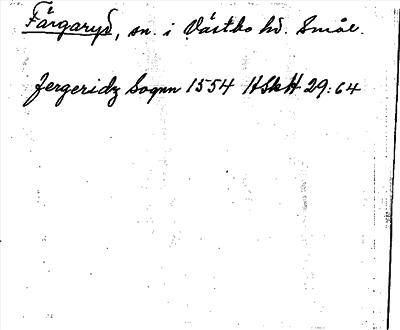 Färgaryd, sn. i Västbo hd. Smål.
fergeridz Sognn 1554 HSkH 29:64